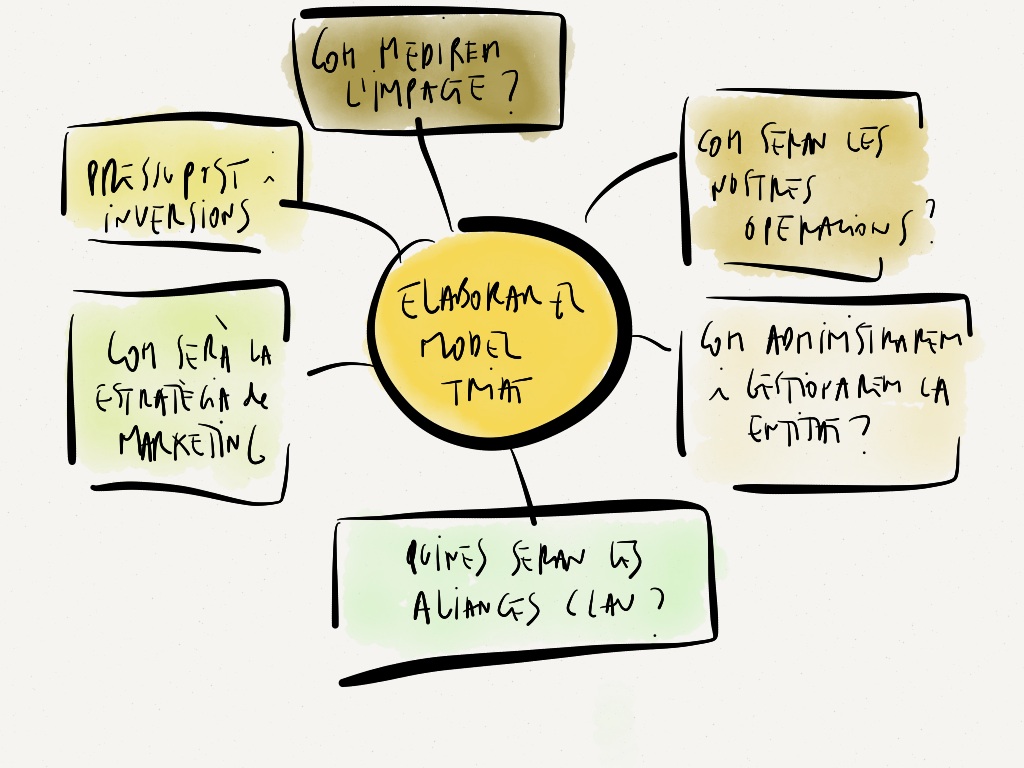 COM MEDIREM
L'IMPACTE ?
PRESSUPOST i
INVERSIONS
COM SERAN LES
NOSTRES
OPERACIONS ?
ELABORAR EL
MODEL
TMAT
COM SERÀ LA
ESTRATÈGIA de
MARKETING
COM ADMINISTRAREM
i GESTIONAREM LA
ENTITAT ?
QUINES SERAN LES
ALIANCES CLAU ?